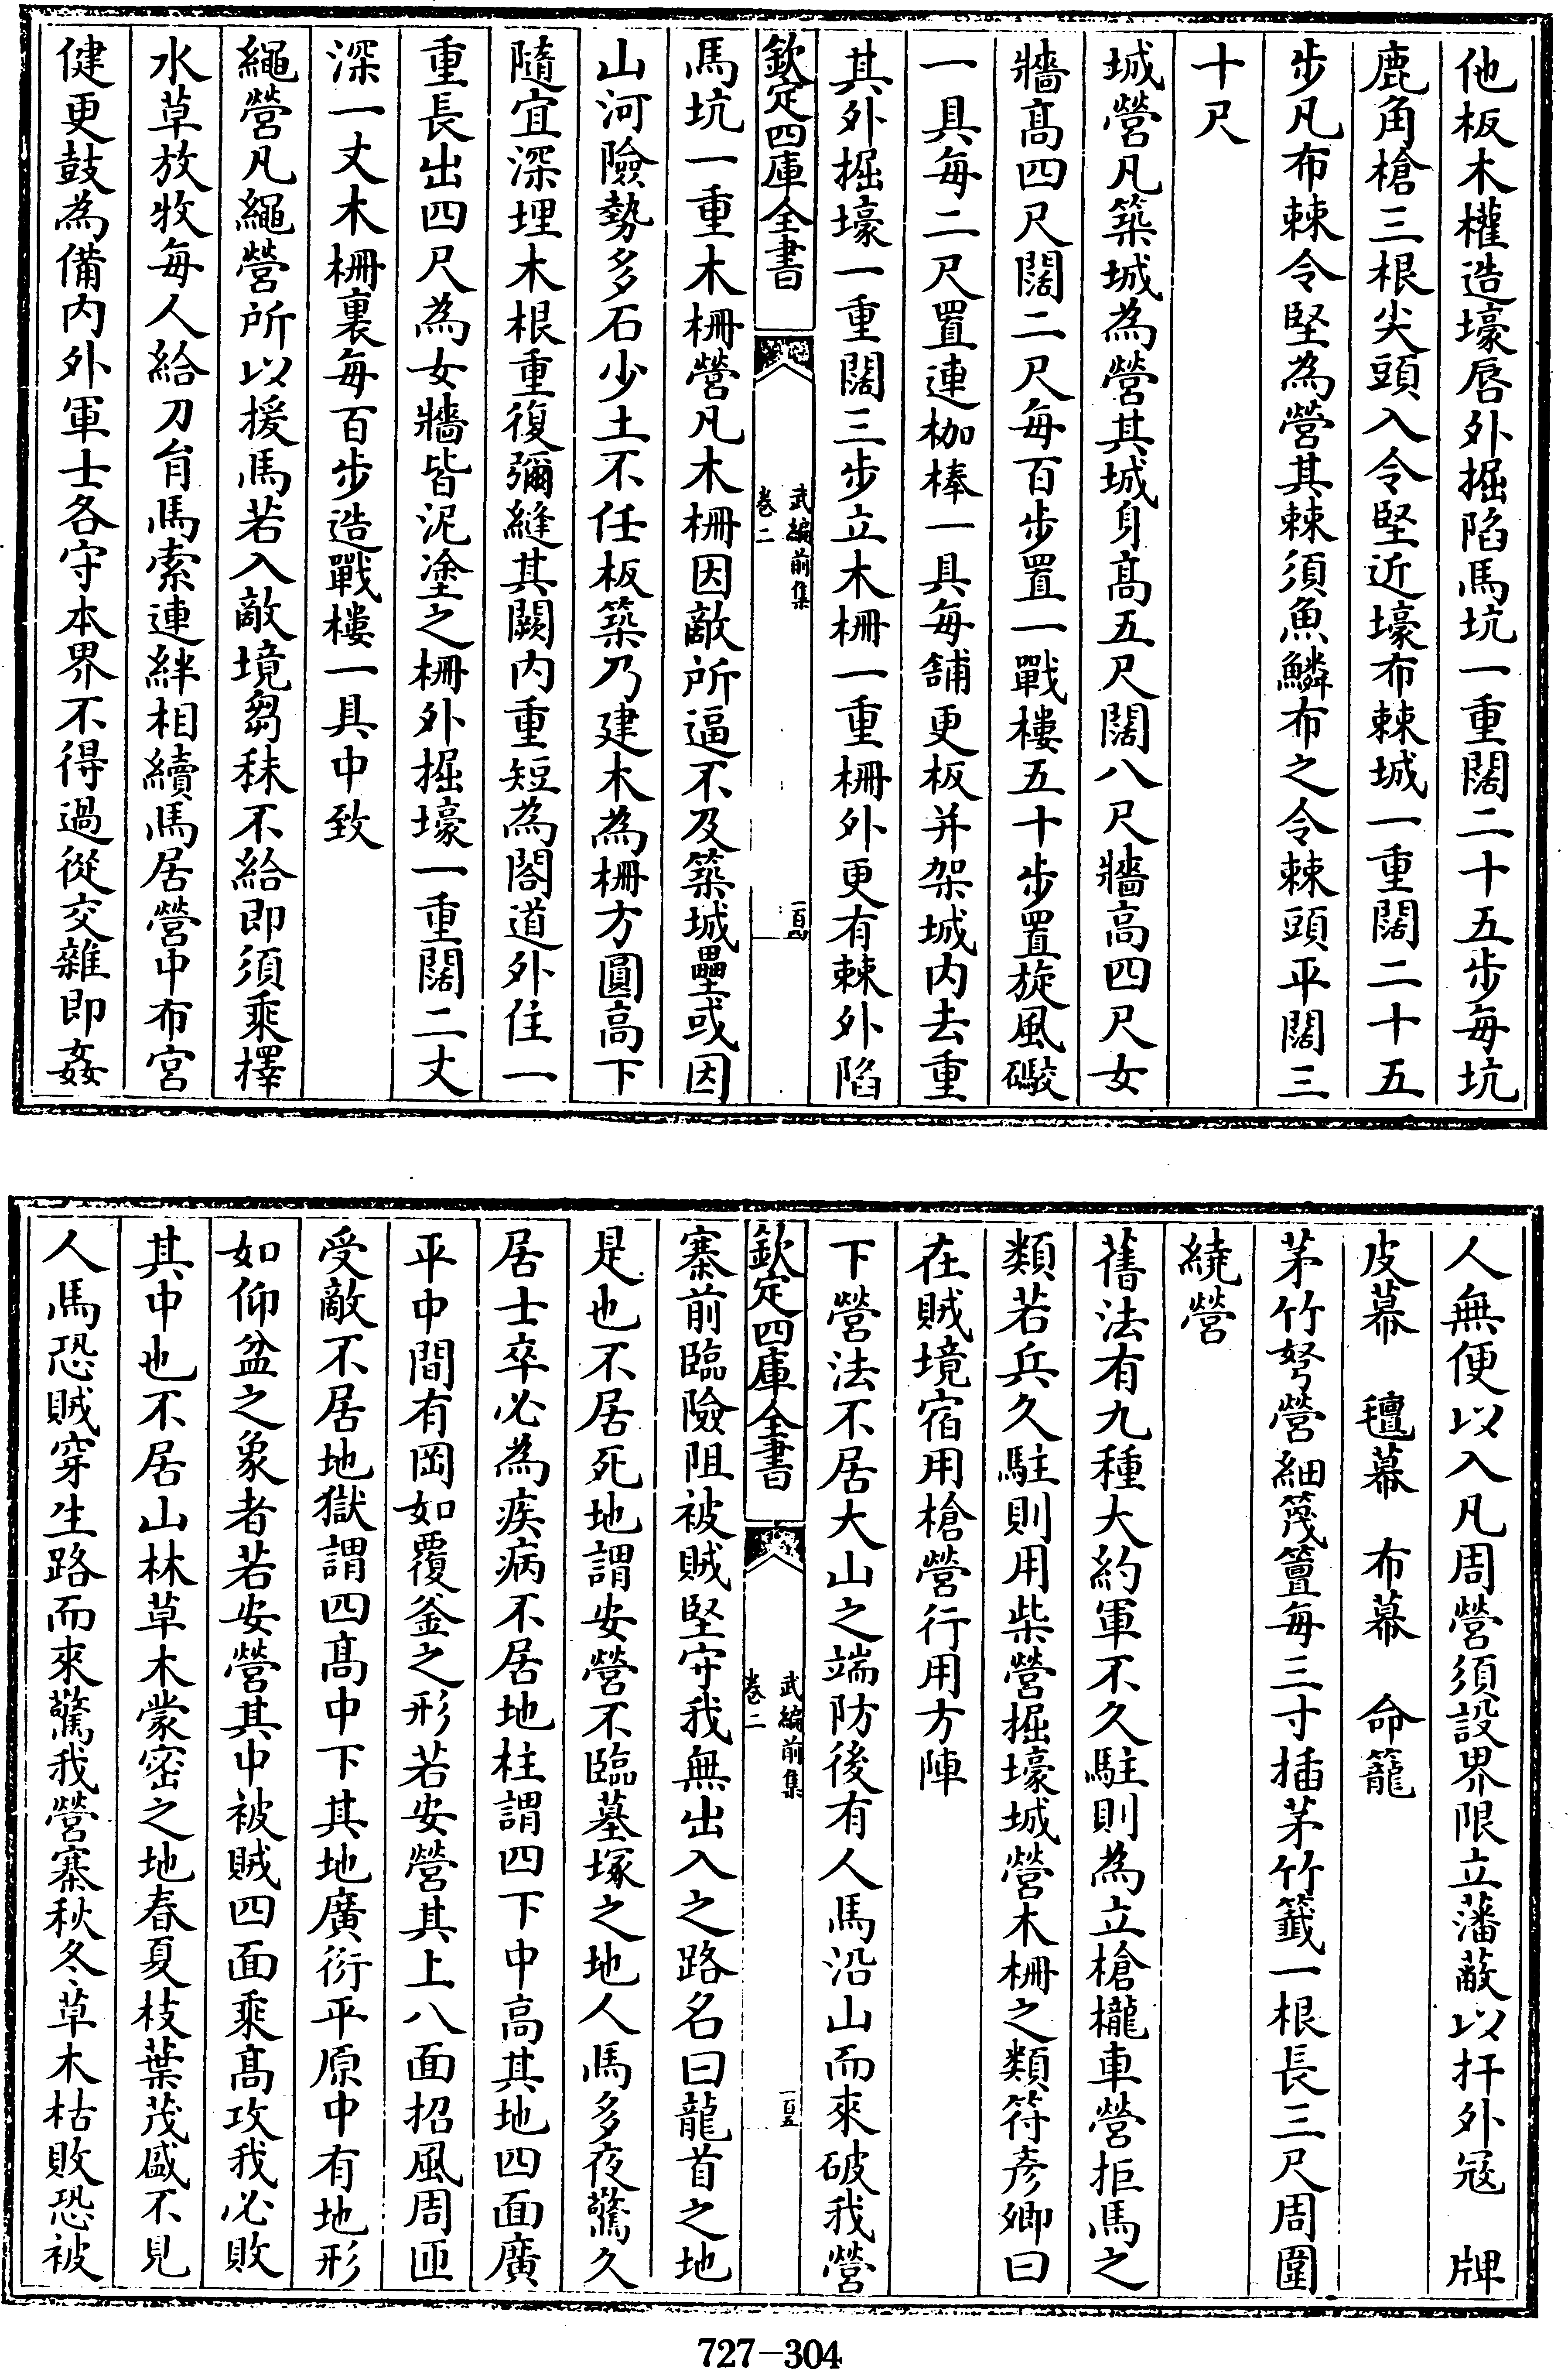 他板木權造壕唇外掘陷馬坑一重闊二十五步每坑
鹿角槍三根尖頭入令堅近壕布棘城一重闊二十五
步凡布棘令堅為營其棘須魚鱗布之令棘頭平闊三
十尺
城營凡築城為營其城身髙五尺闊八尺牆高四尺女
牆髙四尺闊二尺每百步置一戰樓五十步置旋風礮
一具每二尺置連枷棒一具每舖更板并架城内去重
其外掘壕一重闊三步立木柵一重柵外更有棘外陷
欽定四庫全書
武編前集
卷二
一百四
馬坑一重木柵營凡木柵因敵所逼不及築城壘或因
山河險勢多石少土不任板築乃建木為柵方圓高下
隨宜深埋木根重復彌縫其闕内重短為閣道外住一
重長出四尺為女牆皆泥塗之柵外掘壕一重闊二丈
深一丈木柵裏每百步造戰樓一具中致
繩營凡繩營所以援馬若入敵境芻秣不給即須乘擇
水草放牧每人給刀肓馬索連絆相續馬居營中布宮
健更鼓為備内外軍士各守本界不得過從交雜即姦
人無便以入凡周營須設界限立藩蔽以扞外冦 牌
皮幕 氊幕 布幕 命籠
茅竹弩營細篾簠每三寸插茅竹籤一根長三尺周圍
繞營
舊法有九種大約軍不久駐則為立槍櫳車營拒馬之
類若兵久駐則用柴營掘壕城營木柵之類符彦卿曰
在賊境宿用槍營行用方陣
下營法不居大山之端防後有人馬沿山而來破我營
欽定四庫全書
武編前集
卷二
一百五
寨前臨險阻被賊堅守我無出入之路名曰龍首之地
是也不居死地謂安營不臨墓塚之地人馬多夜驚久
居士卒必為疾病不居地柱謂四下中高其地四面廣
平中間有岡如覆釜之形若安營其上八面招風周匝
受敵不居地獄謂四髙中下其地廣衍平原中有地形
如仰盆之象者若安營其中被賊四面乘髙攻我必敗
其中也不居山林草木蒙密之地春夏枝葉茂盛不見
人馬恐賊穿生路而來驚我營寨秋冬草木枯敗恐被
727-304